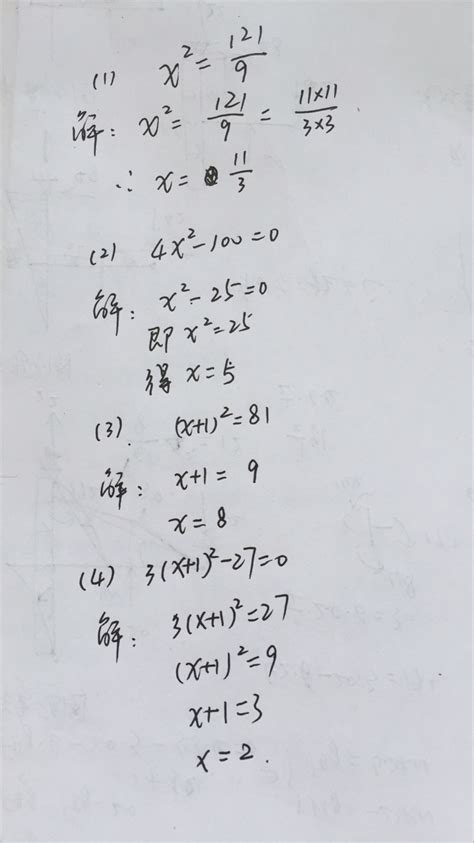 (1) x² = 121/9
解: x² = 121/9 = 11×11/3×3.
∴ x = 11/3
(2) 4x²-100=0
解: x²-25=0
即 x²=25
得 x=5
(3). (x+1)²=81
解: x+1= 9
x=8
(4) 3(x+1)²-27=0
解: 3(x+1)²=27
(x+1)²=9
x+1=3
x=2.